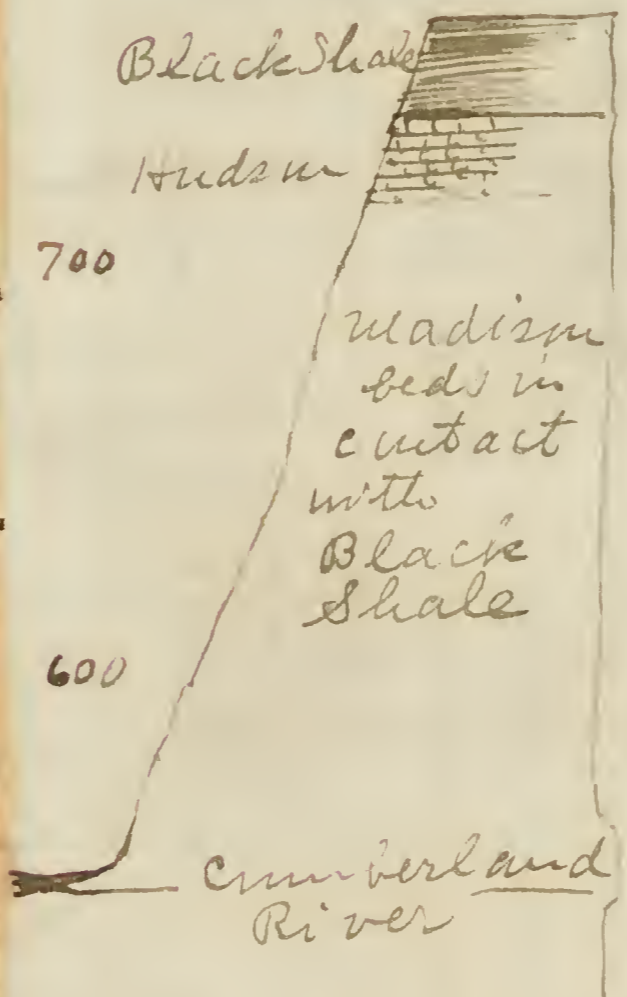 Black Shale
Hudson
700
Madison
beds in
contact
with
Black
Shale
600
Cumberland
River